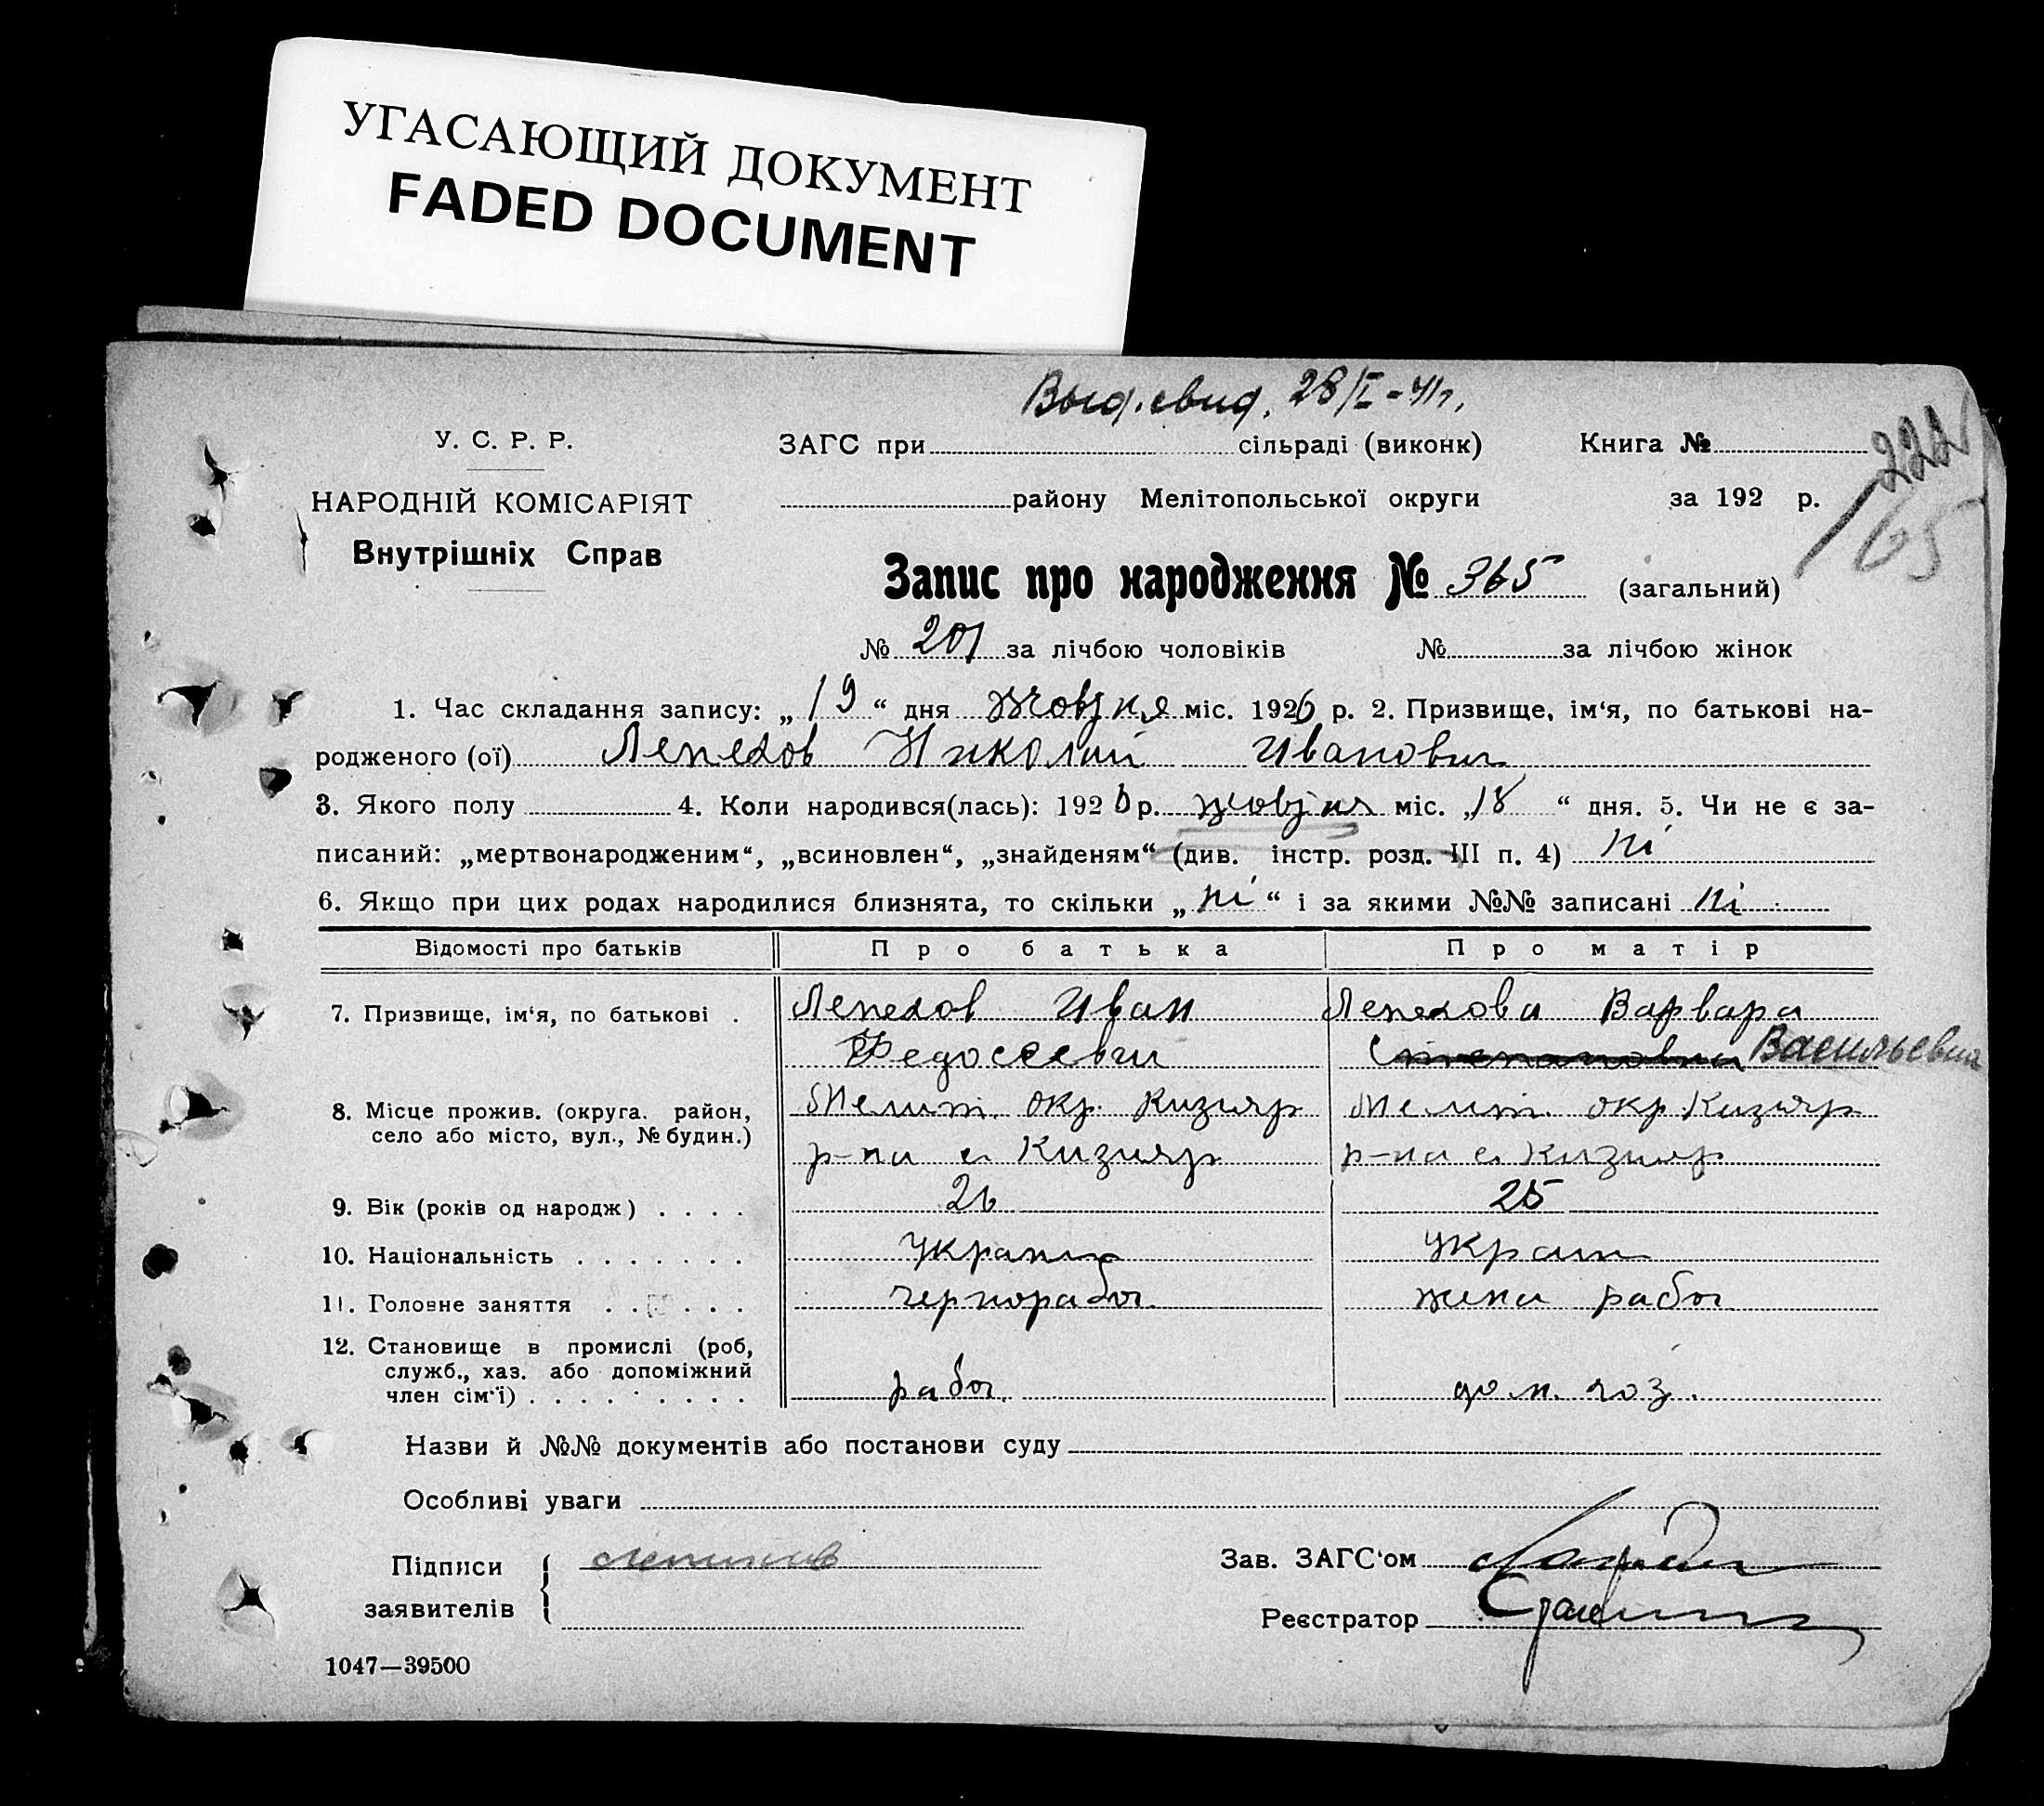 УГАСАЮЩИЙ ДОКУМЕНТ
FADED DOCUMENT
Выд. свид. 28/I - 41 г.
У. С. Р. Р.
ЗАГС при сільраді (виконк) Книга №
222
НАРОДНІЙ КОМІСАРІЯТ
району Мелітопольської округи за 192 р.
165
Внутрішніх Справ
Запис про народження № 365 (загальний)
№ 201 за лічбою чоловіків № за лічбою жінок
1. Час складання запису: „19“ дня жовтня міс. 1926 р. 2. Призвище, ім‘я, по батькові на-
родженого (ої) Лепехов Николай Иванович
3. Якого полу 4. Коли народився(лась): 1926 р. жовтня міс. „18“ дня. 5. Чи не є за-
писаний: „мертвонародженим“, „всиновлен“, „знайденям“ (див. інстр. розд. III п. 4) ні
6. Якщо при цих родах народилися близнята, то скільки „ні“ і за якими №№ записані ні
Відомості про батьків Про батька Про матір
7. Призвище, ім‘я, по батькові . Лепехов Иван Лепехова Варвара
Федосеевич Степановна Васильевна
8. Місце прожив. (округа. район, Мелит. окр. Кизияр Мелит. окр Кизияр
село або місто, вул., № будин.) р-на с. Кизияр р-на с. Кизияр
9. Вік (років од народж) . . . . 26 25
10. Національність . . . . . . . украин
11. Головне заняття . . . . . . чернораб жена рабоч
12. Становище в промислі (роб,
служб., хаз. або допоміжний
член сім‘ї) . . . . . . . . рабоч. дом. хоз.
Назви й №№ документів або постанови суду
Особливі уваги
Підписи
заявителів
Зав. ЗАГС‘ом
Реєстратор
1047—39500